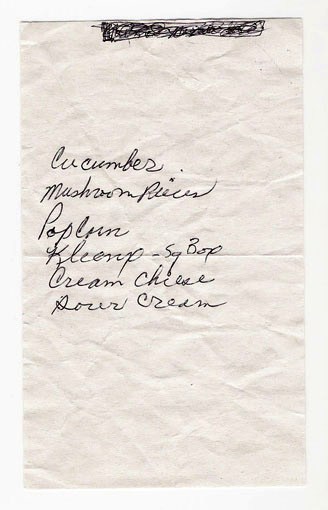 Cucumber
Mushroom Pieces
Popcorn
Sq Box
Cream Cheese
Sour Cream